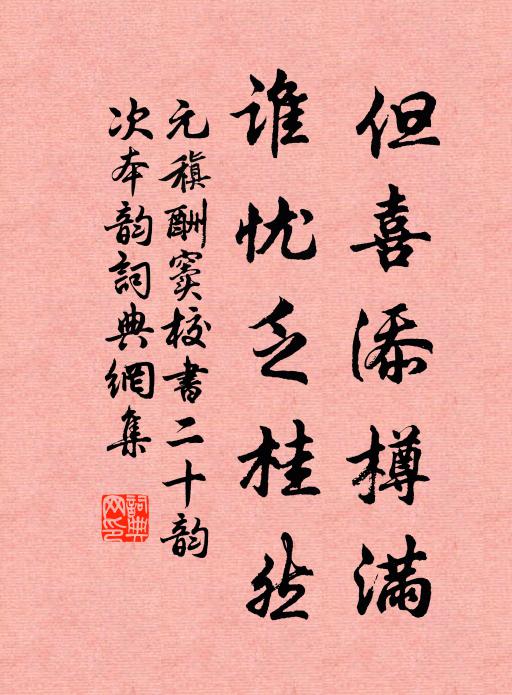 但喜添樽满
谁忧乏桂然
元稹酬窦校书二十韵
次本韵詞典網集
詞典网印